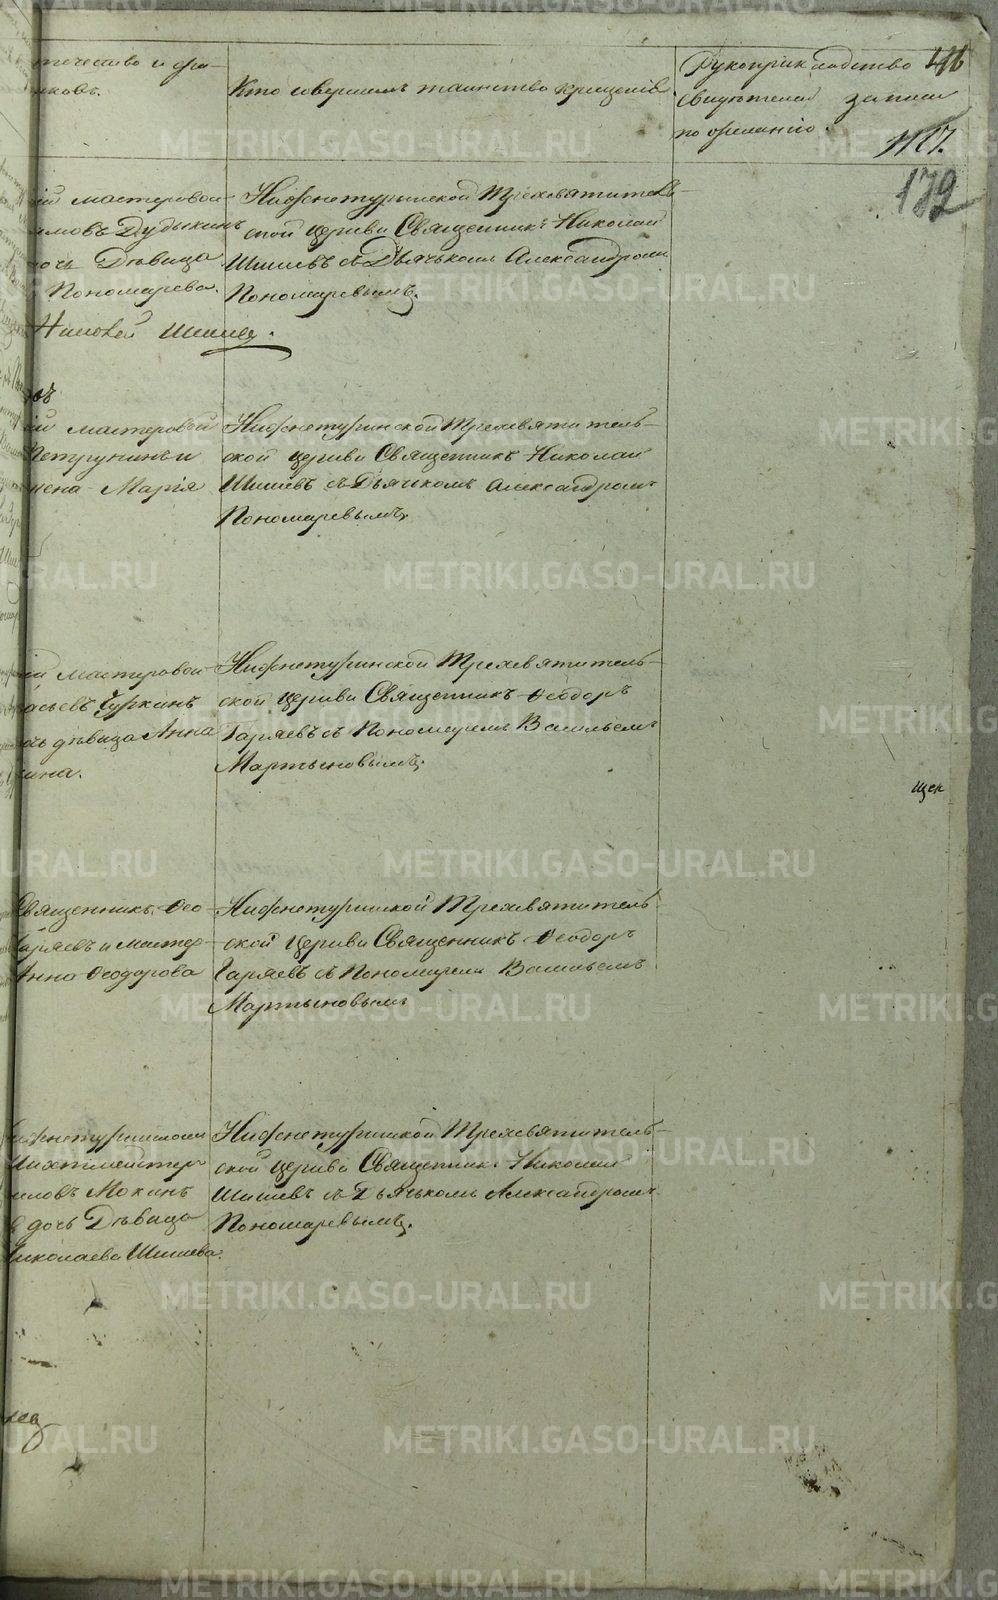 Кто совершалъ таинство крещенія.
Рукоприкладство
свидѣтелей записи
по желанію.
179
ій мастеровой
Дудыкинъ
дочь Дѣвица
Пономарева.
Николай Шишев.
Нижнетуринской Трехсвятитель-
ской церкви Священникъ Николай
Шишевъ съ Дьячькомъ Александромъ
Пономаревымъ.
мастеровой
Петрунинъ и
жена Марія
Нижнетуринской Трехсвятитель-
ской церкви Священникъ Николай
Шишевъ съ Дьячкомъ Александромъ
Пономаревымъ
мастеровой
Чуркинъ
дѣвица Анна
Нижнетуринской Трехсвятитель-
ской церкви Священникъ Ѳеодоръ
Гаряевъ съ Пономаремъ Васильемъ
Мартыновымъ.
Священникъ Ѳео-
Гаряевъ и мастер-
Анна Ѳеодорова
Нижнетуринской Трехсвятитель-
ской Церкви Священникъ Ѳеодоръ
Гаряевъ съ Пономаремъ Васильемъ
Мартыновымъ
Мокинъ
дочь Дѣвица
Николаева Шишева.
Нижнетуринской Трехсвятитель-
ской церкви Священник Николай
Шишевъ съ Дьячькомъ Александромъ
Пономаревымъ.
METRIKI.GASO-URAL.RU